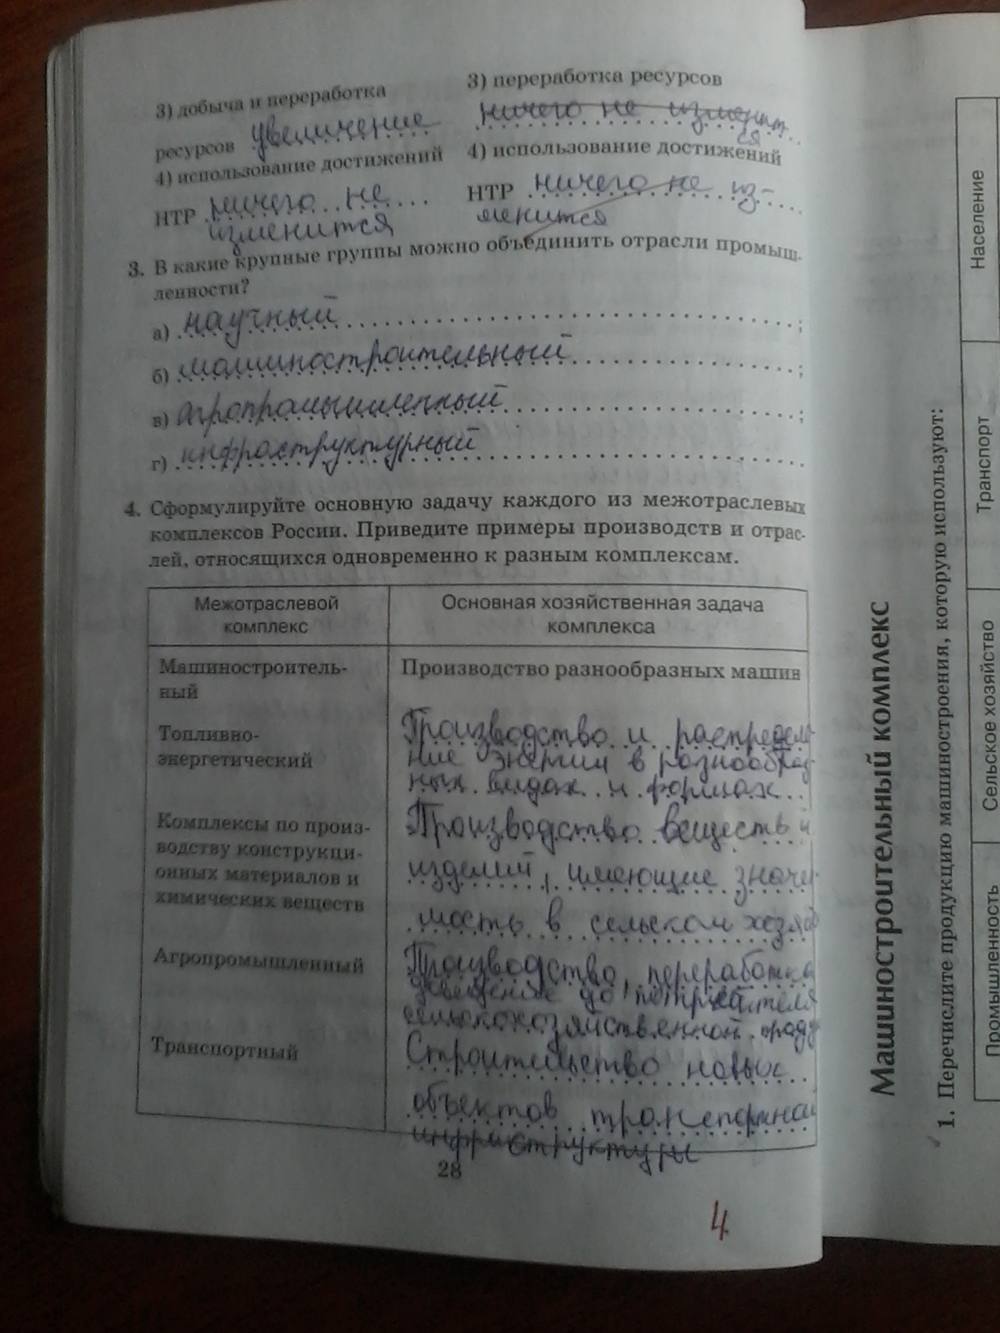 3) добыча и переработка
ресурсов увеличение
4) использование достижений
НТР ничего не
изменится
3) переработка ресурсов
ничего не изменит
ся
4) использование достижений
НТР ничего не из-
менится
3. В какие крупные группы можно объединить отрасли промыш-
ленности?
а) научный ;
б) машиностроительный ;
в) агропромышленный ;
г) инфроструктурный .
4. Сформулируйте основную задачу каждого из межотраслевых
комплексов России. Приведите примеры производств и отрас-
лей, относящихся одновременно к разным комплексам.
Межотраслевой
комплекс
Основная хозяйственная задача
комплекса
Машиностроитель-
ный
Производство разнообразных машин
Топливно-
энергетический
Производство и распределе
ние энергии в разнообраз
ных видах и формах
Комплексы по произ-
водству конструкци-
онных материалов и
химических веществ
Производство веществ и
изделий, имеющие значи
мость в сельском хозяй
Агропромышленный
Производство, переработка
доведение до потребителя
сельскохозяйственной проду
Транспортный
Строительство новых
объектов транспортной
инфраструктуры
28
4
Машиностроительный комплекс
1. Перечислите продукцию машиностроения, которую используют:
Промышленность
Сельское хозяйство
Транспорт
Население